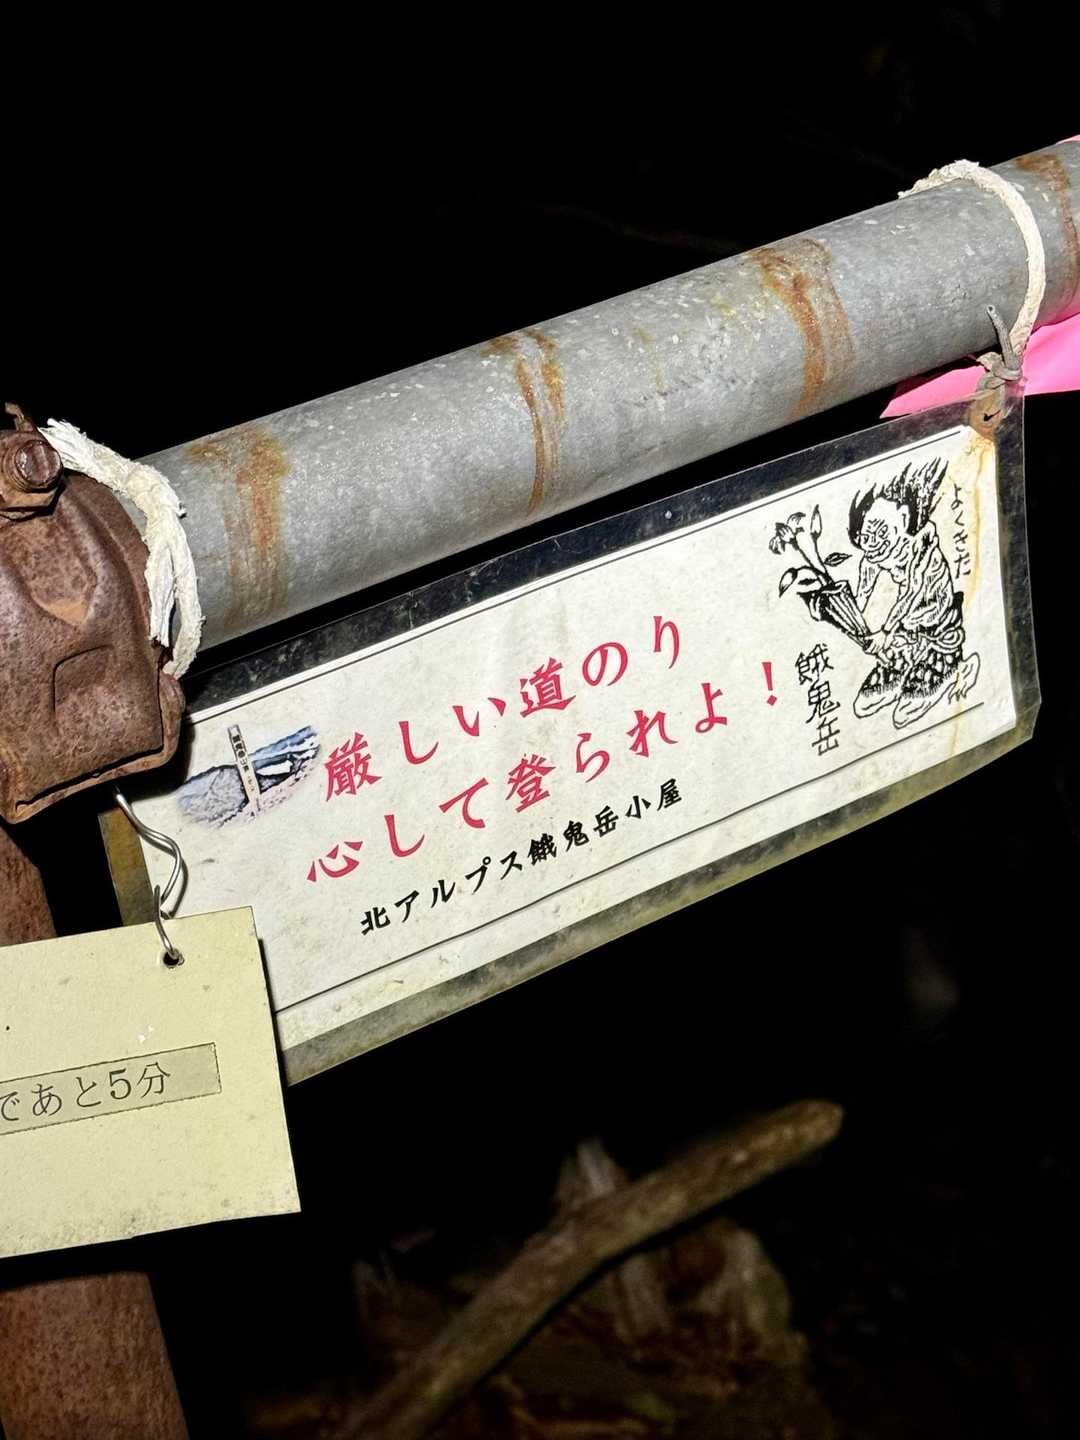 よくきた
餓鬼岳
厳しい道のり
心して登られよ！
北アルプス餓鬼岳小屋
であと5分